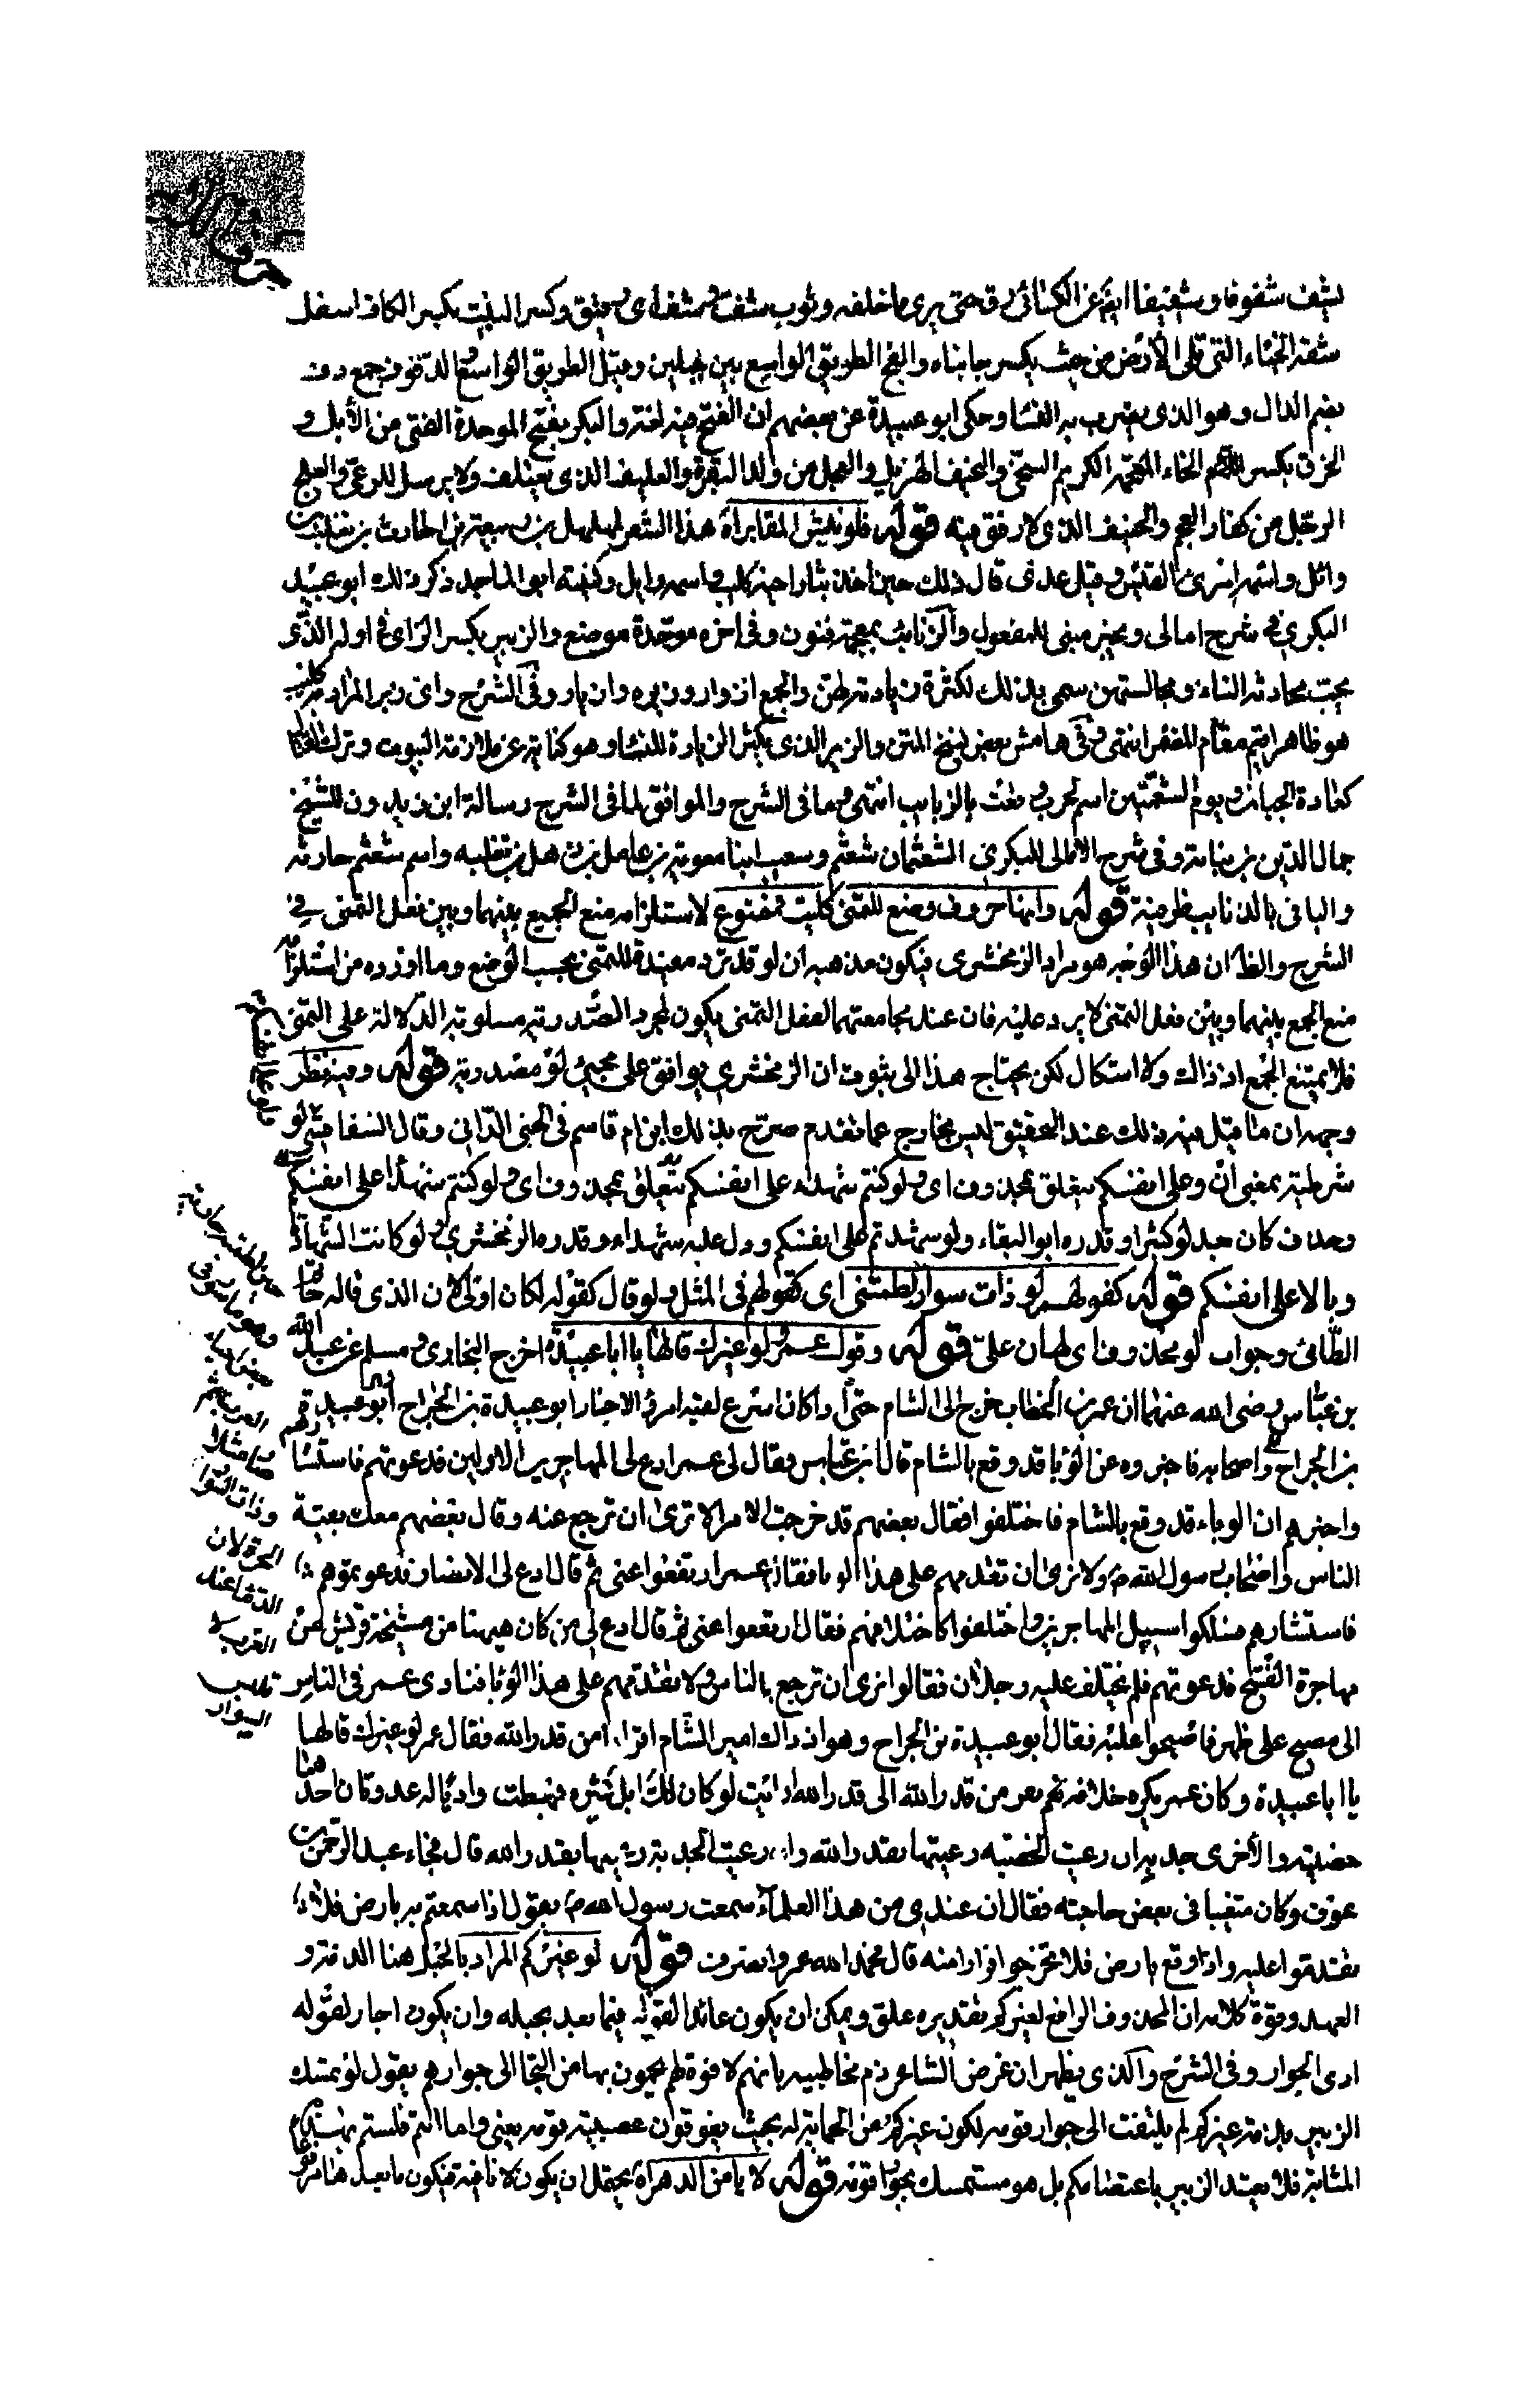 يشف شفوفا وشفيفا ايضا عن الكسائى رق حتى يرى ما خلفه وثوب شف وشف اى رقيق وكسر البيت بكسر الكاف اسفل
شقة الخباء التى تلى الأرض من حيث يكسر جانباه والفج الطريق الواسع بين جبلين وقيل الطريق الواسع الدفوف جمع دف
بضم الدال وهو الذى يضرب به النسا وحكى ابو عبيدة عن بعضهم ان الفتح فيه لغة والبكر بفتح الموحدة الفتى من الأبل و
الخرق بكسر الخاء المعجمة الكريم السخى والنحيف الهزيل والعجل من ولد البقرة والعليف الذى يعتلف ولا يرسل للرعى والعلج
الرجل من كفار العجم والعنيف الذى لا رفق فيه قوله فلو نبش المقابر اه هذا الشعر لمهلهل بن ربيعة بن الحارث بن تغلب بن
وائل واسمه امرئ القيس وقيل عدى قال ذلك حين اخذ بثار اخيه كليب واسمه وايل وكنيته ابو الماجد ذكر ذلك ابو عبيد
البكرى فى شرح امالى ويخبر مبنى للمفعول والذنائب بمعجمة فنون وفى اخره موحدة موضع والزير بكسر الزاى فى اوله الذى
يحب محادثة النساء ومجالستهن سمى بذلك لكثرة زيادته لهن والجمع ازوار وزيره وازيار وفى الشرح واى زير المراد به كليب
هو ظاهر اقيم مقام المضمر انتهى وفى هامش بعض نسخ المتن والزير الذى يكثر الزيارة للنسا وهو كناية عن ملازمة البيوت وترك القتال
كعادة الجبان ويوم الشعثمين اسم لحرب وقعت بالذنايب انتهى وما فى الشرح والموافق لما فى الشرح رسالة ابن زيدون للشيخ
جمال الدين بن نباتة وفى شرح الامالى للبكرى الشعثمان شعثم وسعيب ابنا معوية بن عامل بن ذهل بن ثعلبه واسم شعثم حارثه
والبا فى بالذنايب ظرفية قوله وانها حرف وضع للتمنى كليت فمضوع لاستلزامه منع الجمع بينهما وبين فعل التمنى فى
الشرح والظ ان هذا الوجه هو مراد الزمخشرى فيكون مذهبه ان لو قد ترد مفيدة للتمنى بحسب الوضع وما اورده من استلزام
منع الجمع بينهما وبين فعل التمنى لا يرد عليه فان عند مجامعتهما لفعل التمنى يكون لمجرد المصدرية مسلوبة الدلالة على التمنى
فلا يمتنع الجمع اذ ذاك ولا اشكال لكن يحتاج هذا الى ثبوت ان الزمخشرى يوافق على مجيئ لو مصدرية قوله وفيه نظر
وجهه ان ما قيل فيه ذلك عند التحقيق ليس بخارج عما تقدم صرح بذلك ابن ام قاسم فى الجنى الدانى وقال السفاقسى لو
شرطية بمعنى ان وعلى انفسكم يتعلق بمحذوف اى ولو كنتم شهداء على انفسكم يتعلق بمحذوف اى ولو كنتم شهدا على انفسكم
وحذف كان بعد لو كثيرا وقدره ابو البقاء ولو شهدتم على انفسكم ودل عليه شهداء وقدره الزمخشرى ولو كانت الشهادة
وبالا على انفسكم قوله كقولهم لو ذات سوار لطمتنى اى كقولهم فى المثل ولو قال كقوله لكان اولى لان الذى قاله حاتم
الطائى وجواب لو محذوف اى لهان على قوله وقول عمر لو غيرك قالها يا ابا عبيدة اخرج البخارى ومسلم عن عبد الله
بن عباس رضى الله عنهما ان عمر بن الخطاب خرج الى الشام حتى اذا كان بسرغ لقيه امرؤ الاجناد ابو عبيدة بن الجراح
بن الجراح واصحابه فاخبروه عن الوبا قد وقع بالشام قال ابن عباس فقال لى عمر ادع لى المهاجرين الاولين فدعوتهم فاستشا
واخبرهم ان الوباء قد وقع بالشام فاختلفوا فقال بعضهم قد خرجت لامر لا ترى ان ترجع عنه وقال بعضهم معك بقية
الناس واصحاب رسول الله ص ولا نرى ان تقدمهم على هذا الوبا فقال عمر ارتفعوا عنى ثم قال ادع لى الانصار فدعوتهم
فاستشارهم فسلكوا سبيل المهاجرين واختلفوا كاختلافهم فقال ارتفعوا عنى ثم قال ادع لى من كان هيهنا من مشيخة قريش من
مهاجرة الفتح فدعوتهم فلم يختلف عليه رجلان فقالوا نرى ان ترجع بالناس ولا تقدمهم على هذا الوبا فنادى عمر فى الناس
انى مصبح على ظهر فاصبحوا عليه فقال ابو عبيدة بن الجراح وهو اذ ذاك امير الشام افرارا من قدر الله فقال عمر لو غيرك قالها
يا ابا عبيدة وكان عمر يكره خلافه نعم نفر من قدر الله الى قدر الله ارايت لو كان لك ابل كثيرة فهبطت واديا له عدوتان احدهما
خصبة والأخرى جدبة ان رعيت الخصبة رعيتها بقدر الله وان رعيت الجدبة رعيتها بقدر الله قال فجاء عبد الرحمن بن
عوف وكان متغيبا فى بعض حاجته فقال ان عندى من هذا العلما سمعت رسول الله ص يقول اذا سمعتم به بارض فلا
تقدموا عليه واذا وقع بارض فلا تخرجوا فرارا منه قال فحمد الله عمر وانصرف قوله لو غيركم المراد بالحبل هنا الذمة و
العهد وقوة كلامه ان المحذوف الرافع لغيركم تقديره علق ويمكن ان يكون عائدا لقوله فيما بعد بحبله وان يكون اجار لقوله
ادى الجوار وفى الشرح والذى يظهر ان غرض الشاعر ذم مخاطبيه بانهم لا قوة لهم يحمون بها من التجا الى جوارهم يقول لو تمسك
الزبير بذمة غيركم لم يلتفت الى جوار قومه لكون غيركم من الحماية له بحيث يفوقون عصبية قومه يعنى واما انتم فلستم بهذه
المثابة فلا يعتد الزبير باعتصامكم بل هو مستمسك بجوار قومه قوله لا يامن الدهر اه يحتمل ان يكون لا نافية فيكون ما بعدها مرفو